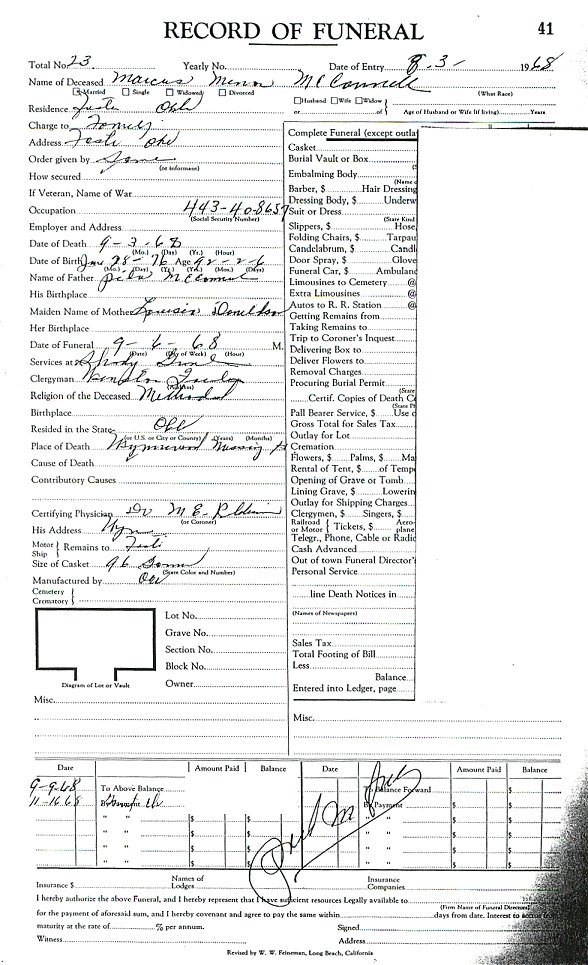 RECORD OF FUNERAL 41
Total No. 23 Yearly No. Date of Entry 9-3- 1968
Name of Deceased Marcus McConnell
Married Single Widowed Divorced (What Race)
Residence Okl Husband Wife Widow
or of Age of Husband or Wife (if living) Years
Charge to Family
Address Okl
Order given by Same
(or informant)
How secured
If Veteran, Name of War
Occupation 443-40-8657
(Social Security Number)
Employer and Address
Date of Death 9-3-68
(Mo.) (Day) (Yr.) (Hour)
Date of Birth June 28-76 Age 92-2-6
(Mo.) (Day) (Yr.) (Yrs.) (Mos.) (Days)
Name of Father McConnell
His Birthplace
Maiden Name of Mother Donaldson
Her Birthplace
Date of Funeral 9-6-68 M.
(Date) (Day of Week) (Hour)
Services at
Clergyman
(Address)
Religion of the Deceased Methodist
Birthplace
Resided in the State Okl
(or U.S. or City or County) (Years) (Months)
Place of Death Nursing
Cause of Death
Contributory Causes
Certifying Physician Dr M.E.
(or Coroner)
His Address
Motor Ship Remains to
Size of Casket
(State Color and Number)
Manufactured by
Cemetery
Crematory
Lot No.
Grave No.
Section No.
Block No.
Owner
Diagram of Lot or Vault
Misc.
Complete Funeral (except outla
Casket
Burial Vault or Box
Embalming Body
(Name o
Barber, $ Hair Dressing
Dressing Body, $ Underw
Suit or Dress
(State Kind
Slippers, $ Hose,
Folding Chairs, $ Tarpau
Candelabrum, $ Candl
Door Spray, $ Glove
Funeral Car, $ Ambulanc
Limousines to Cemetery @
Extra Limousines @
Autos to R. R. Station @
Getting Remains from
Taking Remains to
Trip to Coroner's Inquest
Delivering Box to
Deliver Flowers to
Removal Charges
Procuring Burial Permit
(State
Certif. Copies of Death C
(State Pl
Pall Bearer Service, $ Use o
Gross Total for Sales Tax
Outlay for Lot
Cremation
Flowers, $ Palms, $ Ma
Rental of Tent, $ of Temp
Opening of Grave or Tomb
Lining Grave, $ Lowerin
Outlay for Shipping Charges
Clergymen, $ Singers, $
Railroad or Motor Tickets, $ Aero-plane
Telegr., Phone, Cable or Radio
Cash Advanced
Out of town Funeral Director's
Personal Service
line Death Notices in
(Names of Newspapers)
Sales Tax
Total Footing of Bill
Less
Balance
Entered into Ledger, page
Misc.
Date Amount Paid Balance Date Amount Paid Balance
9-9-68 To Above Balance To Balance Forward $
11-16-68 By By Payment $
" " $ $ " " $ $
" " $ $ " " $ $
" " $ $ " " $ $
Paid in full
Insurance $ Names of Lodges Insurance Companies
I hereby authorize the above Funeral, and I hereby represent that I have sufficient resources Legally available to
(Firm Name of Funeral Directors)
for the payment of aforesaid sum, and I hereby covenant and agree to pay the same within days from date. Interest to accrue
maturity at the rate of % per annum. Signed
Witness Address
Revised by W. W. Feineman, Long Beach, California